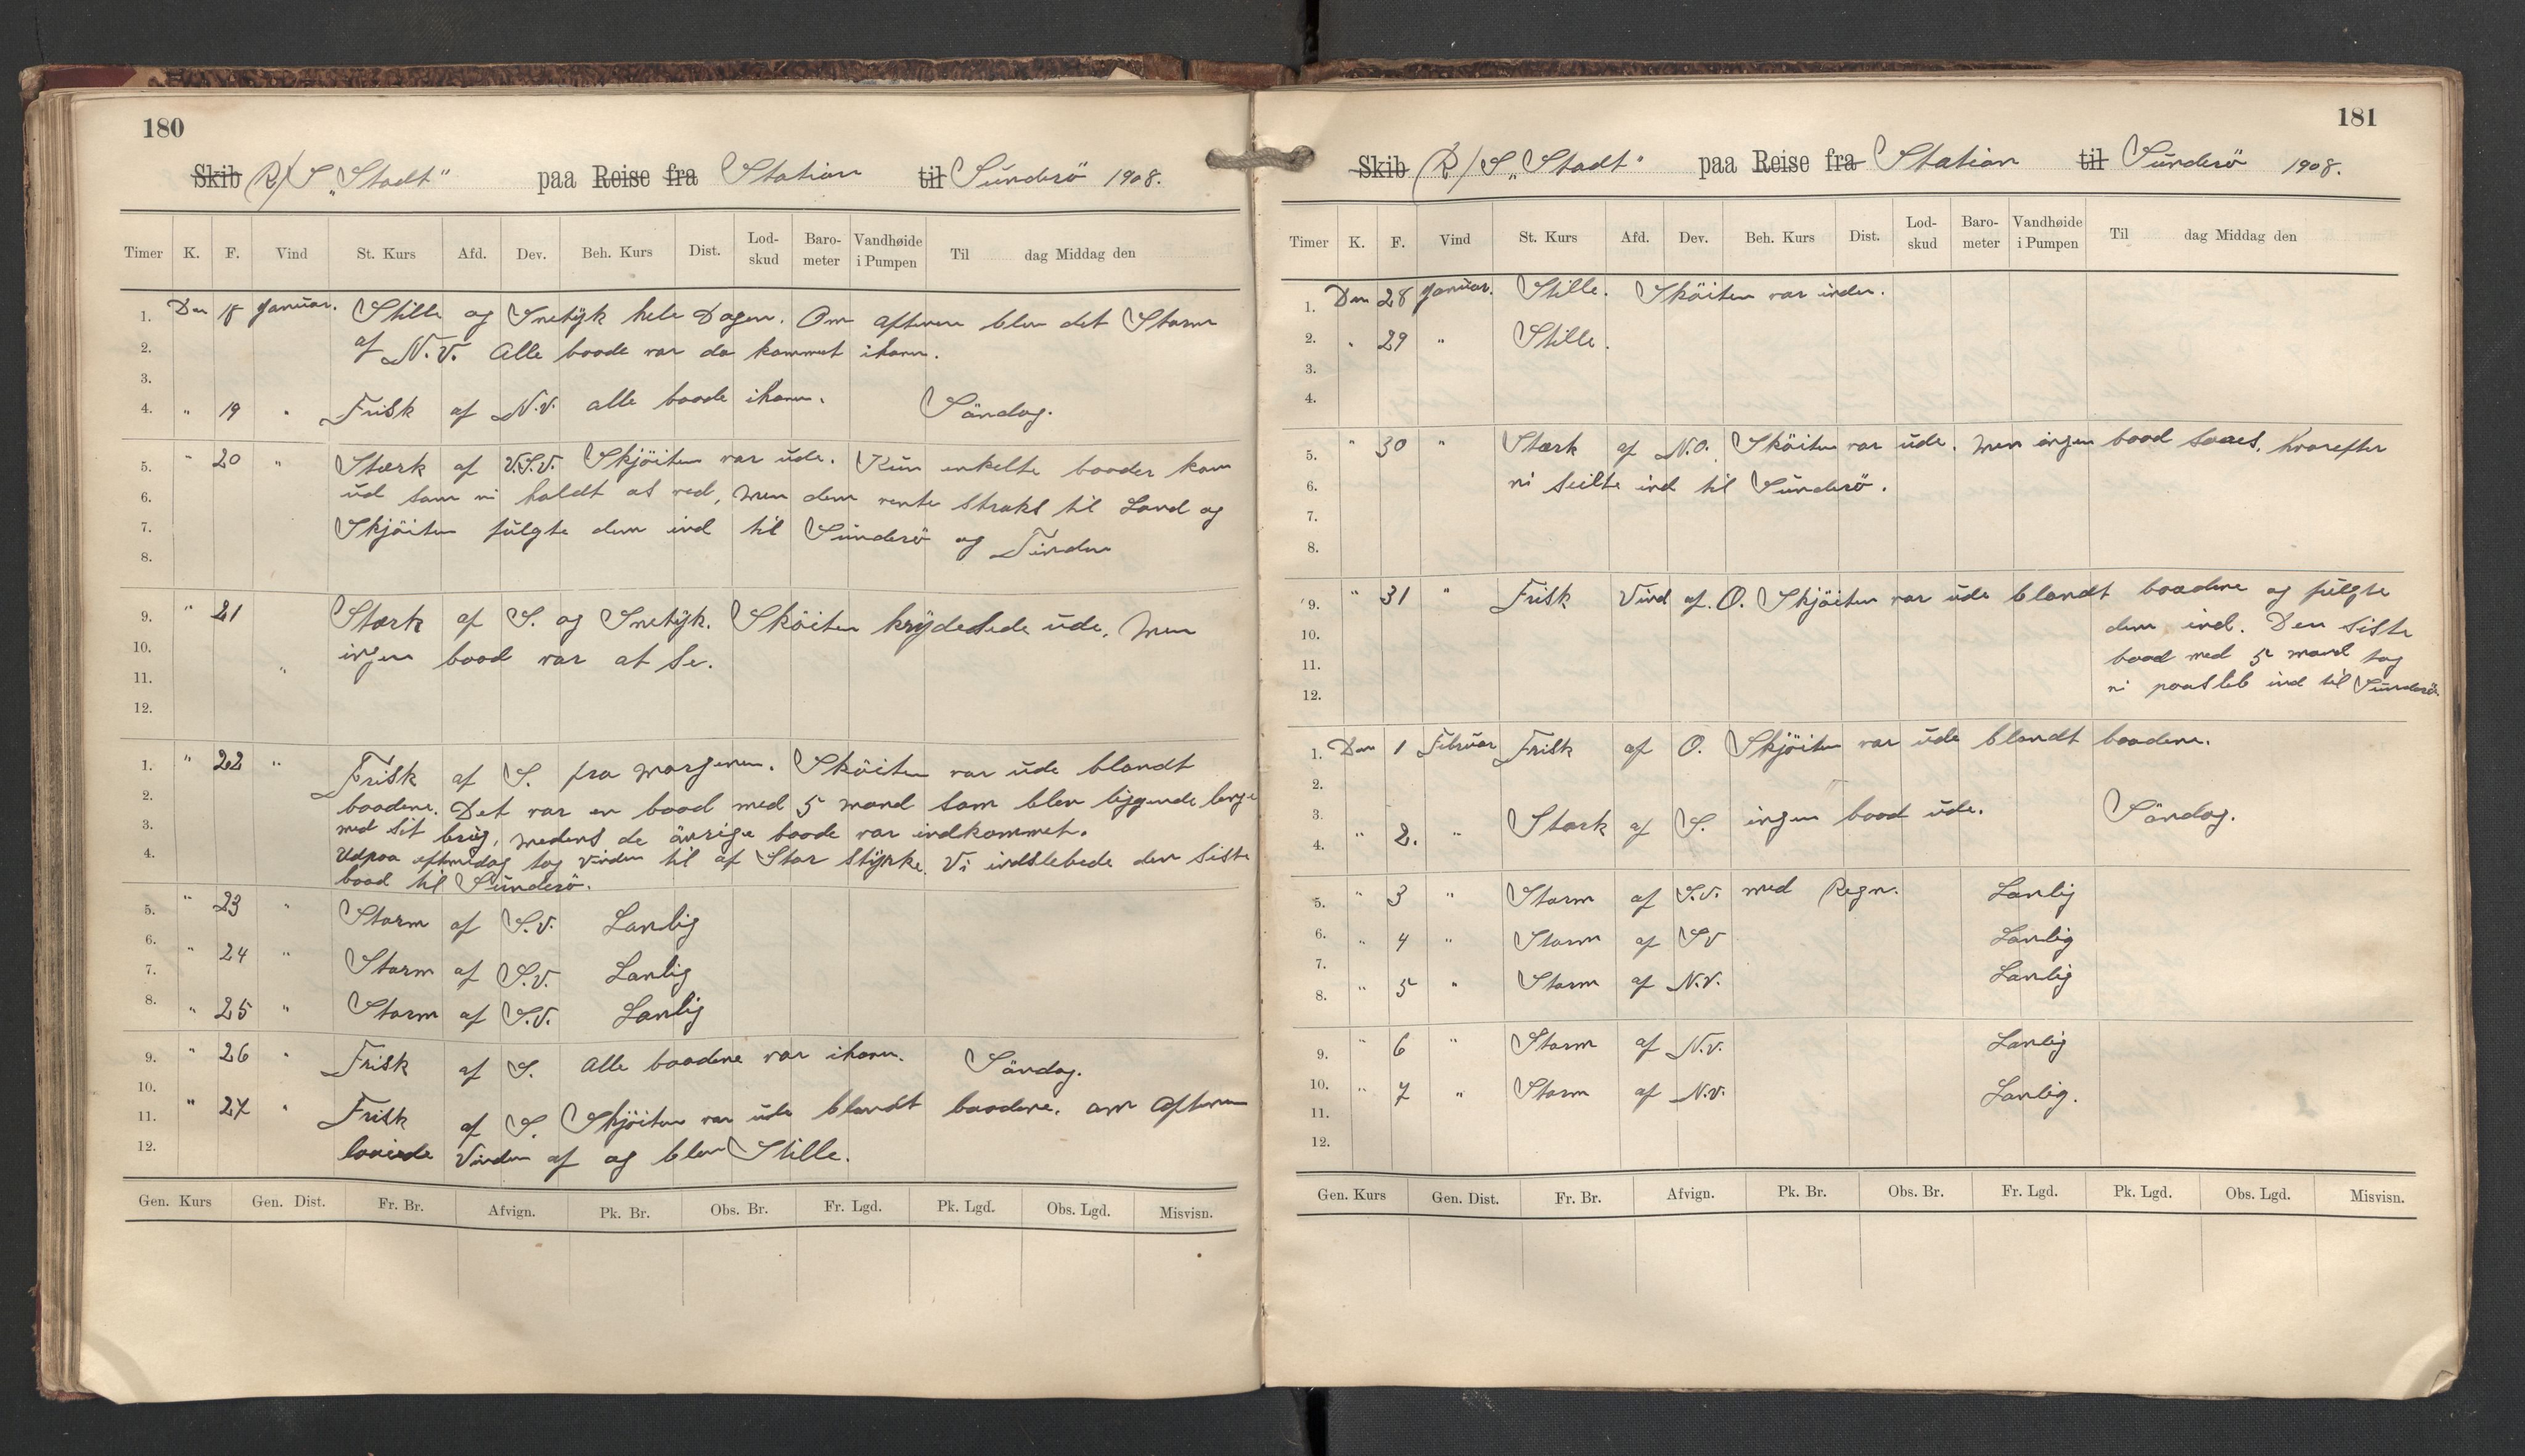 180
Skib R/S „Stadt" paa Reise fra Station til Sünderö 1908.
Timer K. F. Vind St. Kurs Afd. Dev. Beh. Kurs Dist. Lod-skud Baro-meter Vandhøide i Pumpen Til dag Middag den
1. Den 18 Januar. Stille og Snetÿk hele Dagen. Om aftenen blev det Storm
2. af N.V. Alle baade var da kommet ihavn.
3.
4. " 19 " Frisk af N.V. alle baade ihavn. Söndag.
5. " 20 " Stærk af V.S.V. Skjöiten var üde. Kün enkelte baader kom
6. üd som vi holdt os ved, men dem vente straks til Land og
7. Skjöiten fülgte dem ind til Sünderö og Tinden
8.
9. " 21 " Stærk af S. og Snetÿk. Sköiten krÿdesede üde, men
10. ingen baad var at se.
11.
12.
1. " 22 " Frisk af S. fra morgenen. Sköiten var üde blandt
2. baadene. Det var en baad med 5 mand som blev liggende lenge
3. med sit brüg, medens de ävrige baade var indkommet.
4. Udpaa eftmidag tog vinden til af Stor stÿrke. Vi indslebede den siste
baad til Sünderö.
5. " 23 " Storm af S.V. Lanlig
6. " 24 " Storm af S.V. Lanlig
7.
8. " 25 " Storm af S.V. Lanlig
9. " 26 " Frisk af S. Alle baadene var ihavn. Söndag.
10.
11. " 27 " Frisk af S. Skjöiten var üde blandt baadene. om Aftenen
12. loviede Vinden af og blev Stille.
Gen. Kurs Gen. Dist. Fr. Br. Afvign. Pk. Br. Obs. Br. Fr. Lgd. Pk. Lgd. Obs. Lgd. Misvisn.
181
Skib R/S „Stadt" paa Reise fra Station til Sünderö 1908.
Timer K. F. Vind St. Kurs Afd. Dev. Beh. Kurs Dist. Lod-skud Baro-meter Vandhøide i Pumpen Til dag Middag den
1. Den 28 Januar. Stille. Sköiten var inden.
2. " 29 " Stille.
3.
4.
5. " 30 " Stærk af N.O. Sköiten var üde. men ingen baad saaes, hvorefter
6. vi seilte ind til Sünderö.
7.
8.
9. " 31 " Frisk Vind af O. Skjöiten var üde blandt baadene og fülgte
10. dem ind. Den siste
11. baad med 5 mand tog
12. vi paasleb ind til Sünderö
1. Den 1 Februar Frisk af O. Skjöiten var üde blandt baadene.
2.
3.
4. " 2. " Stærk af S. ingen baad üde. Söndag.
5. " 3 " Storm af S.V. med Regn. Lanlig
6. " 4 " Storm af SV Lanlig
7.
8. " 5 " Storm af N.V. Lanlig
9. " 6 " Storm af N.V. Lanlig
10. " 7 " Storm af N.V. Lanlig.
11.
12.
Gen. Kurs Gen. Dist. Fr. Br. Afvign. Pk. Br. Obs. Br. Fr. Lgd. Pk. Lgd. Obs. Lgd. Misvisn.